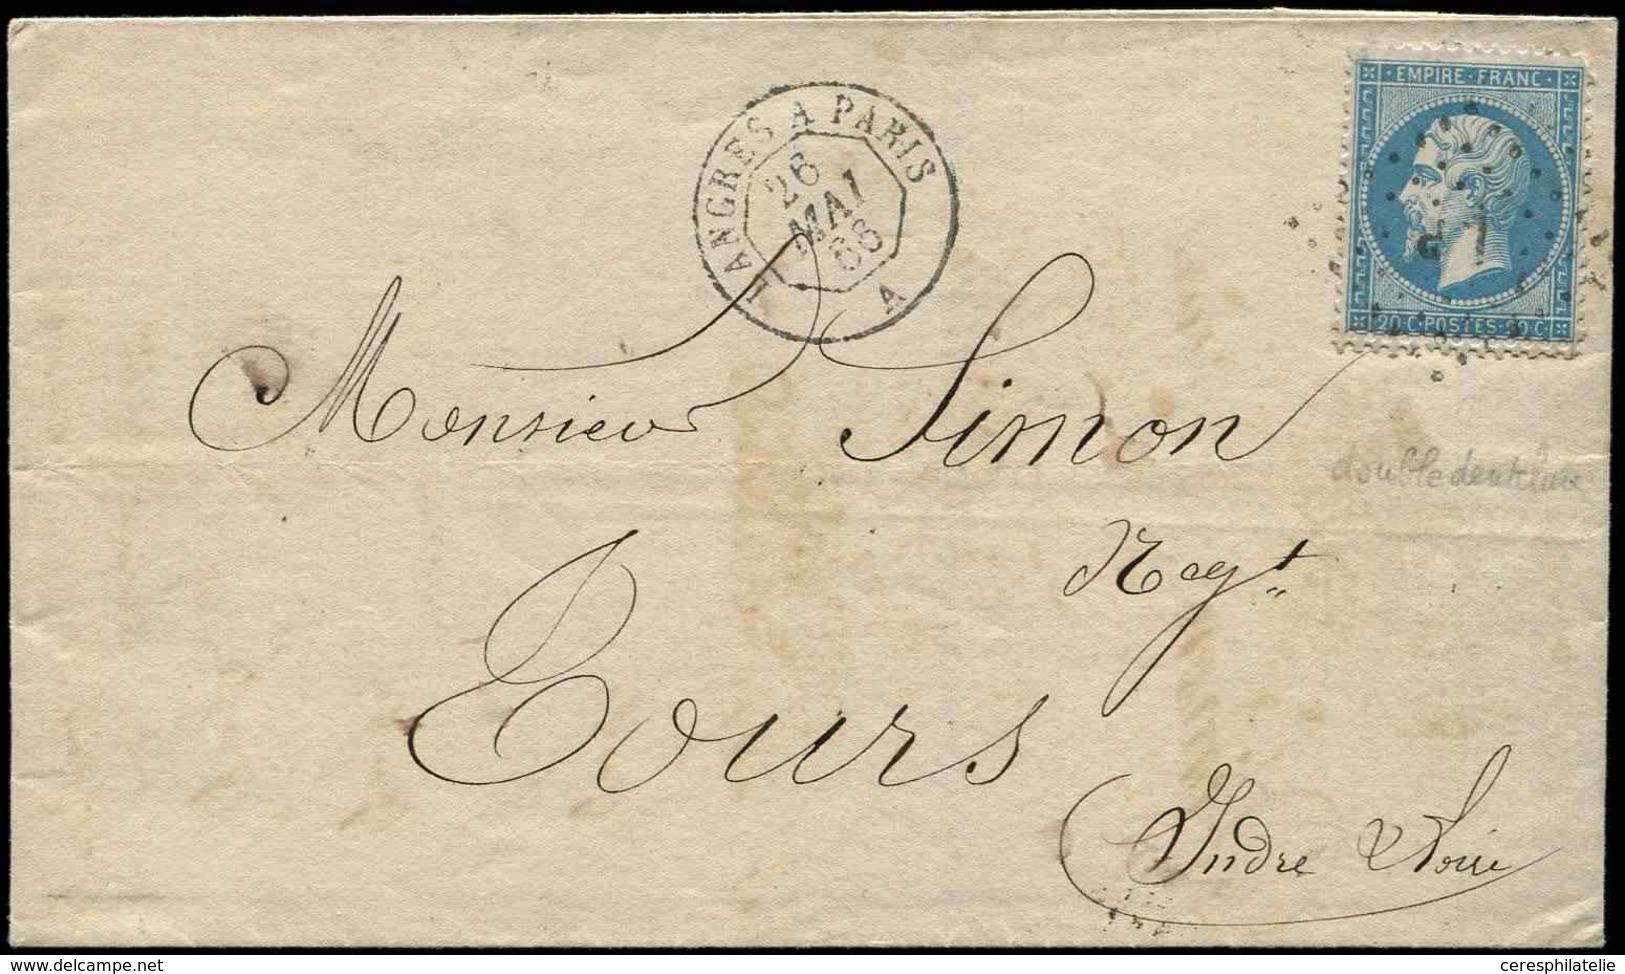 EMPIRE · FRANC ·
20 C · POSTES · 20 C ·
LANGRES A PARIS
26
MAI
68
A
Monsieur Simon
double dentelure
Négt
Tours
Indre & Loire
www.delcampe.net
ceresphilatelie